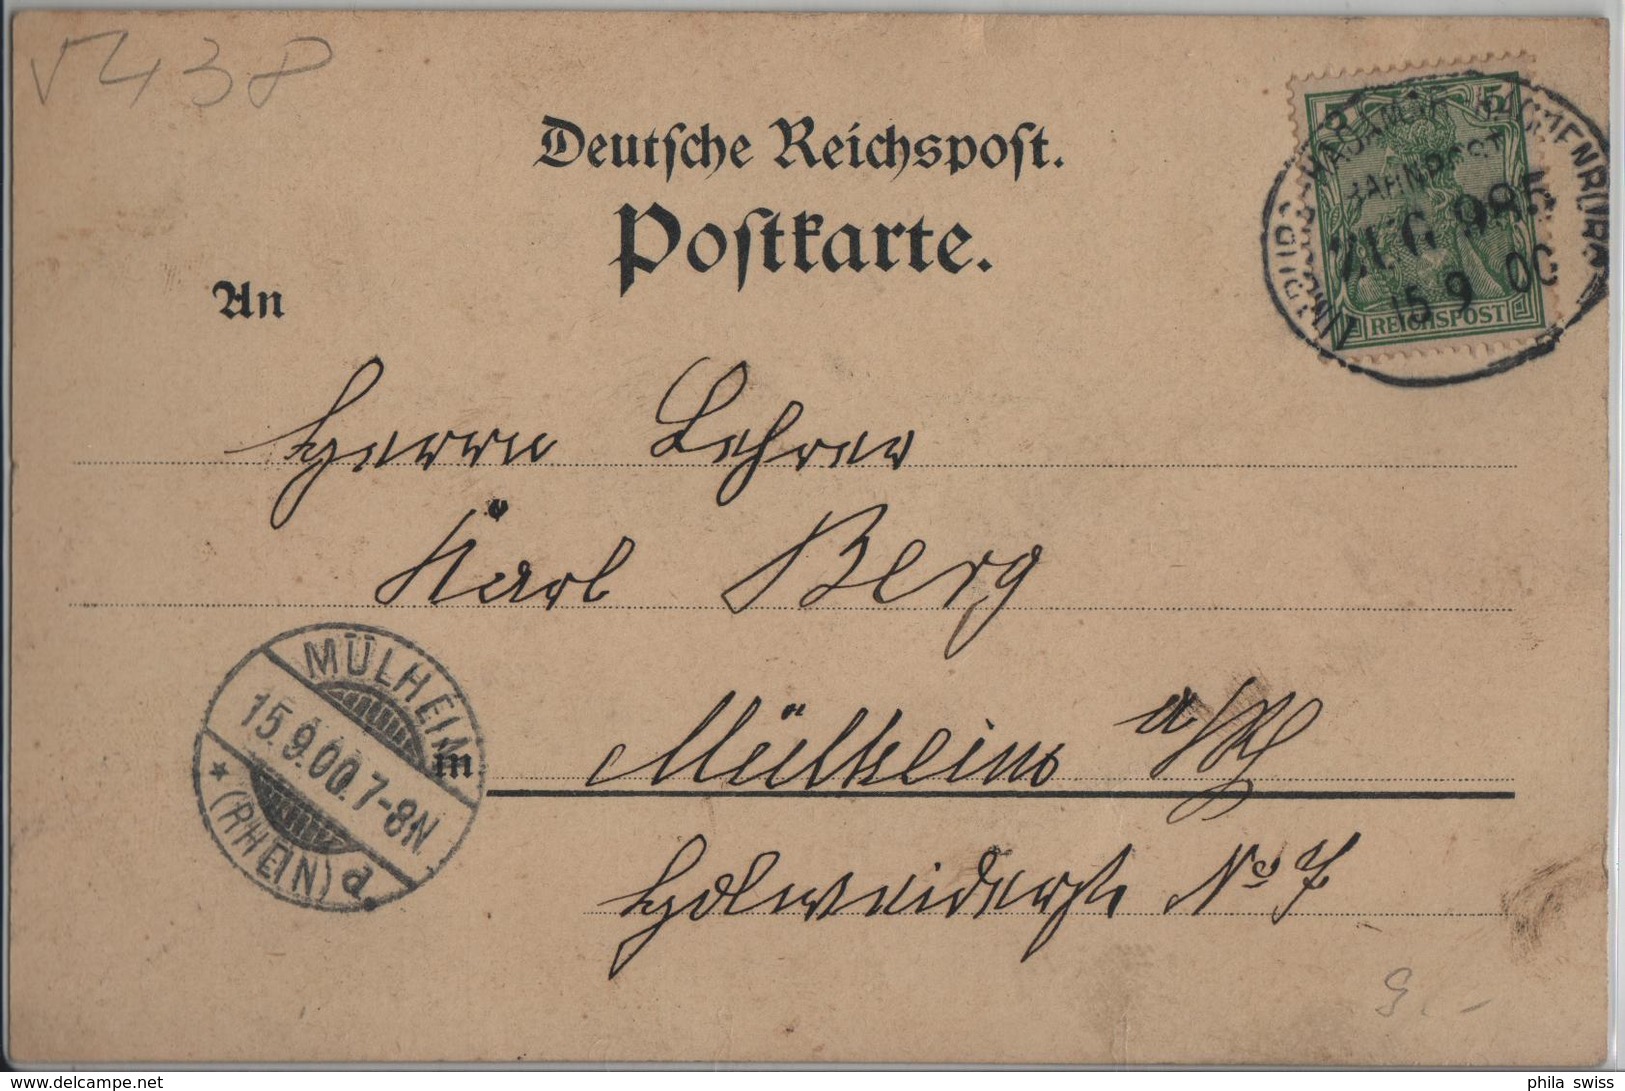 V438
Deutsche Reichspost.
Postkarte.
5 5
BAHNPOST
ZUG 985
15 9 00
REICHSPOST
An
Herrn Lehrer
Karl Berg
MÜLHEIM
15.9.00.7-8N.
* (RHEIN) d.
in Mülheim a/Rh
Holweiderstr No 7
9.-
www.delcampe.net
phila_swiss